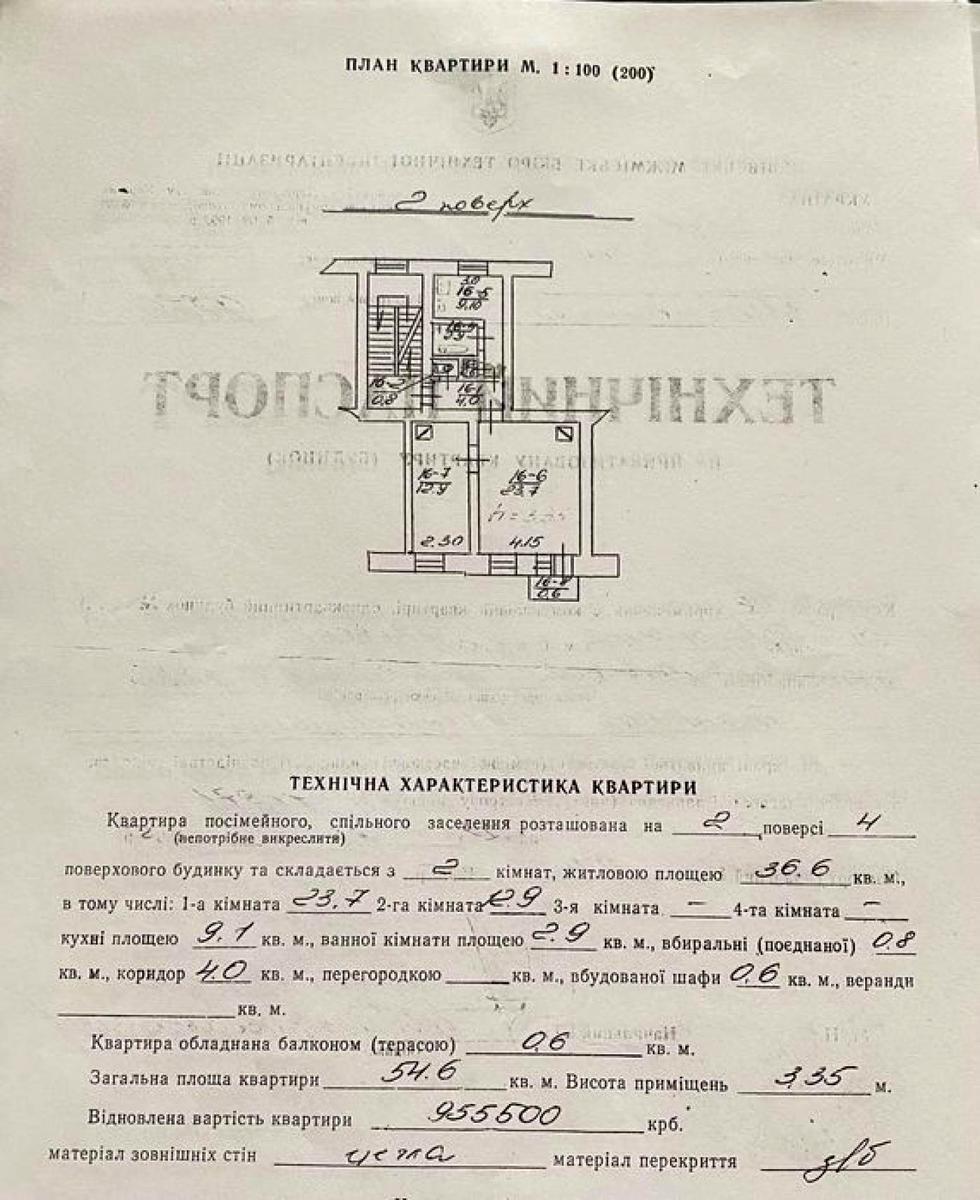 ПЛАН КВАРТИРИ М. 1 : 100 (200)
2 поверх
3.0
16-5
9.10
16-2
0.8
16-1
4.0
16-7
12.9
16-6
23.7
h = 3.35
2.30
4.15
16-8
0.6
ТЕХНІЧНА ХАРАКТЕРИСТИКА КВАРТИРИ
Квартира посімейного, спільного заселення розташована на 2 поверсі 4
(непотрібне викреслити)
поверхового будинку та складається з 2 кімнат, житловою площею 36.6 кв. м.,
в тому числі: 1-а кімната 23,7 2-га кімната 12.9 3-я кімната – 4-та кімната –
кухні площею 9.1 кв. м., ванної кімнати площею 2.9 кв. м., вбиральні (поєднаної) 0,8
кв. м., коридор 4.0 кв. м., перегородкою кв. м., вбудованої шафи 0,6 кв. м., веранди
кв. м.
Квартира обладнана балконом (терасою) 0,6 кв. м.
Загальна площа квартири 54.6 кв. м. Висота приміщень 3,35 м.
Відновлена вартість квартири 955500 крб.
матеріал зовнішніх стін цегла матеріал перекриття з/б